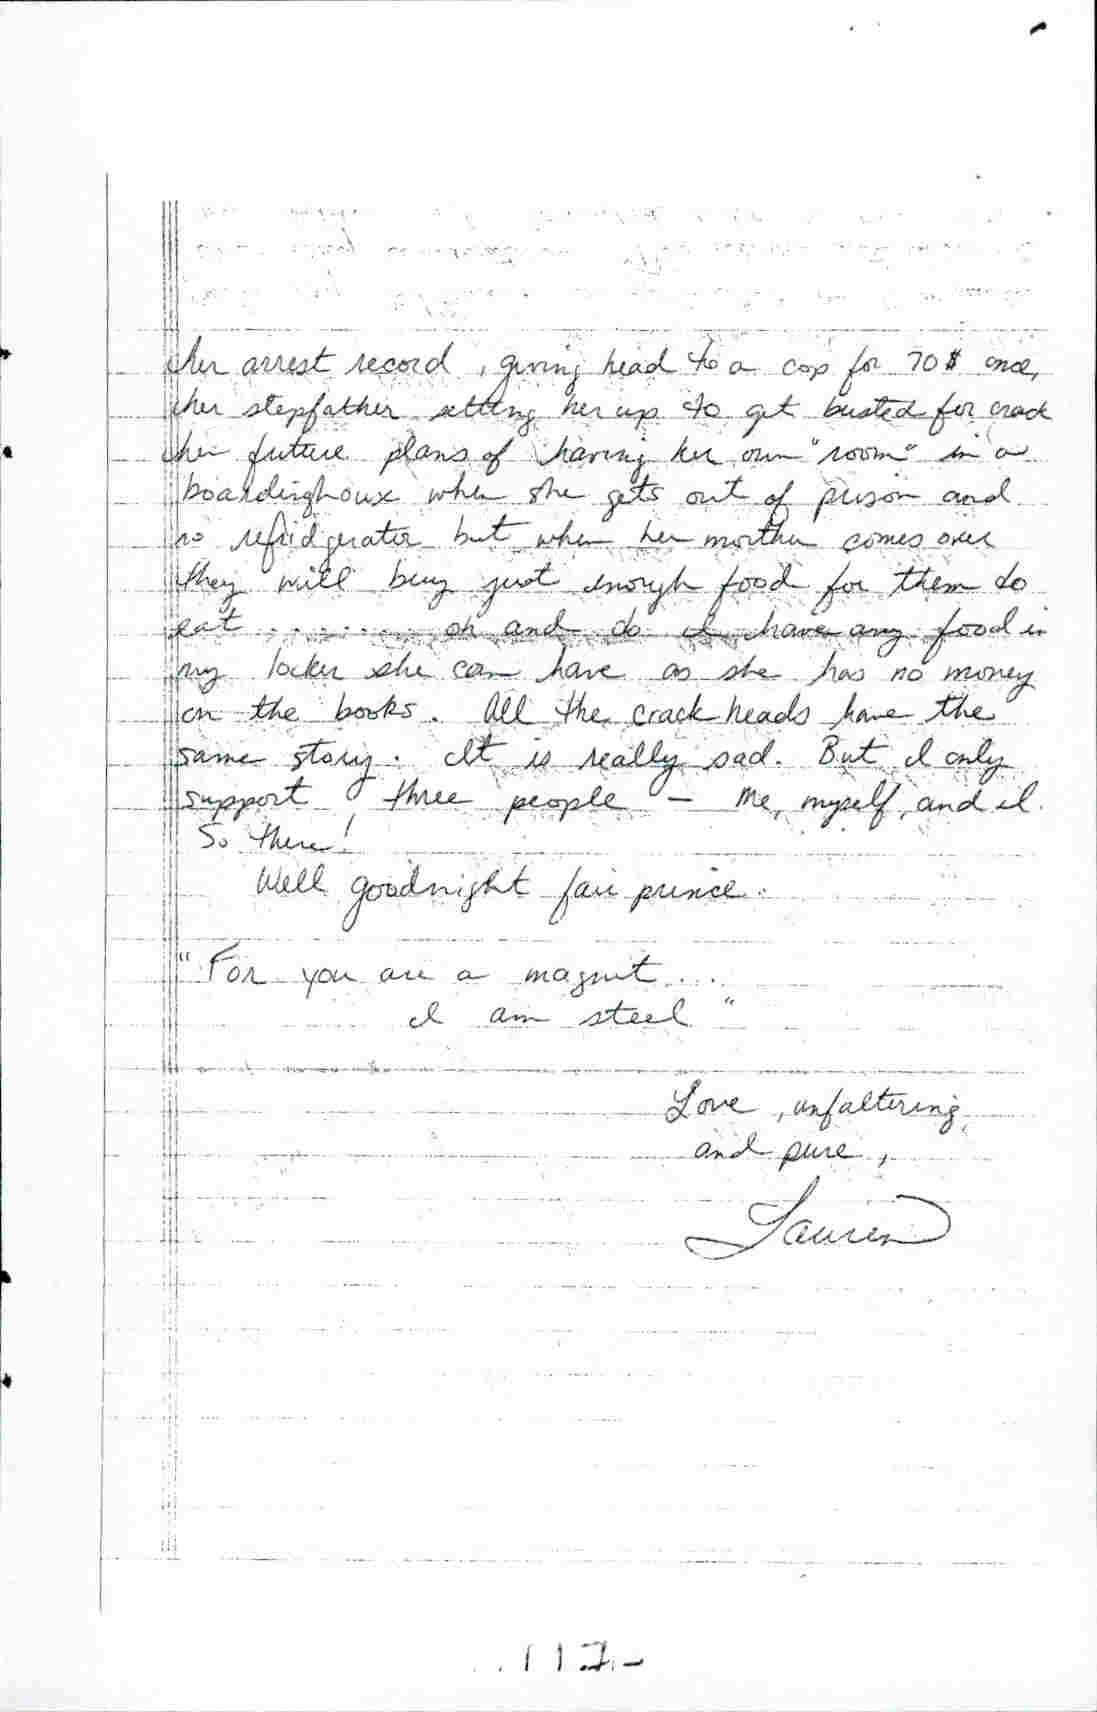 her arrest record, giving head to a cop for 70$ once,
her stepfather setting her up to get busted for crack
her future plans of having her own "room" in a
boardinghouse when she gets out of prison and
no refridgerator but when her morther comes over
they will buy just enough food for them to
eat ........ oh and do I have any food in
my locker she can have as she has no money
on the books. All the crack heads have the
same story. It is really sad. But I only
support three people - me, myself, and I.
So there!
Well goodnight fair prince.
"For you are a magnet...
I am steel"
Love, unfaltering,
and pure,
Lauren